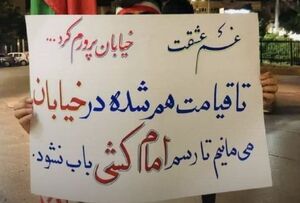 غم عشقت خیابان پرورم کرد...
تا قیامت هم شده در خیابان
می مانیم تا رسم امام کشی باب نشود.